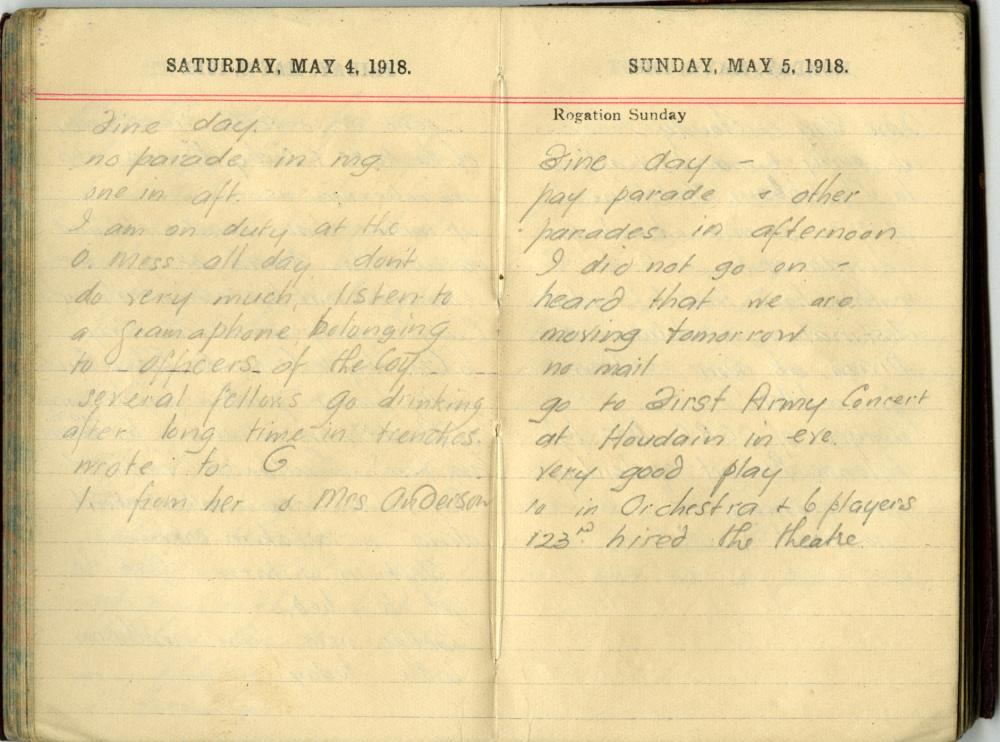 SATURDAY, MAY 4, 1918.
Fine day.
no parade in mg.
one in aft.
I am on duty at the
O. Mess all day don't
do very much, listen to
a gramaphone belonging
to officers of the Coy
several fellows go drinking
after long time in trenches.
wrote to G
1. from her & Mrs Anderson
SUNDAY, MAY 5, 1918.
Rogation Sunday
Fine day –
pay parade & other
parades in afternoon
I did not go on –
heard that we are
moving tomorrow
no mail
go to First Army Concert
at Houdain in eve.
very good play
10 in Orchestra + 6 players
123rd hired the theatre